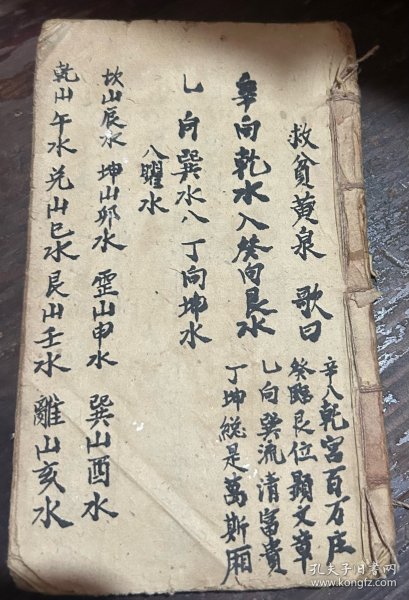 救貧黄泉 歌曰
辛入乾宮百万庄
癸臨艮位顯文章
乚向巽流清富貴
丁坤総是萬斯厢
辛向乾水入癸向艮水
乚向巽水八丁向坤水
八曜水
坎山辰水 坤山邜水 䨓山申水 巽山酉水
乾山午水 兑山巳水 艮山壬水 離山亥水
孔夫子旧书网
www.kongfz.com